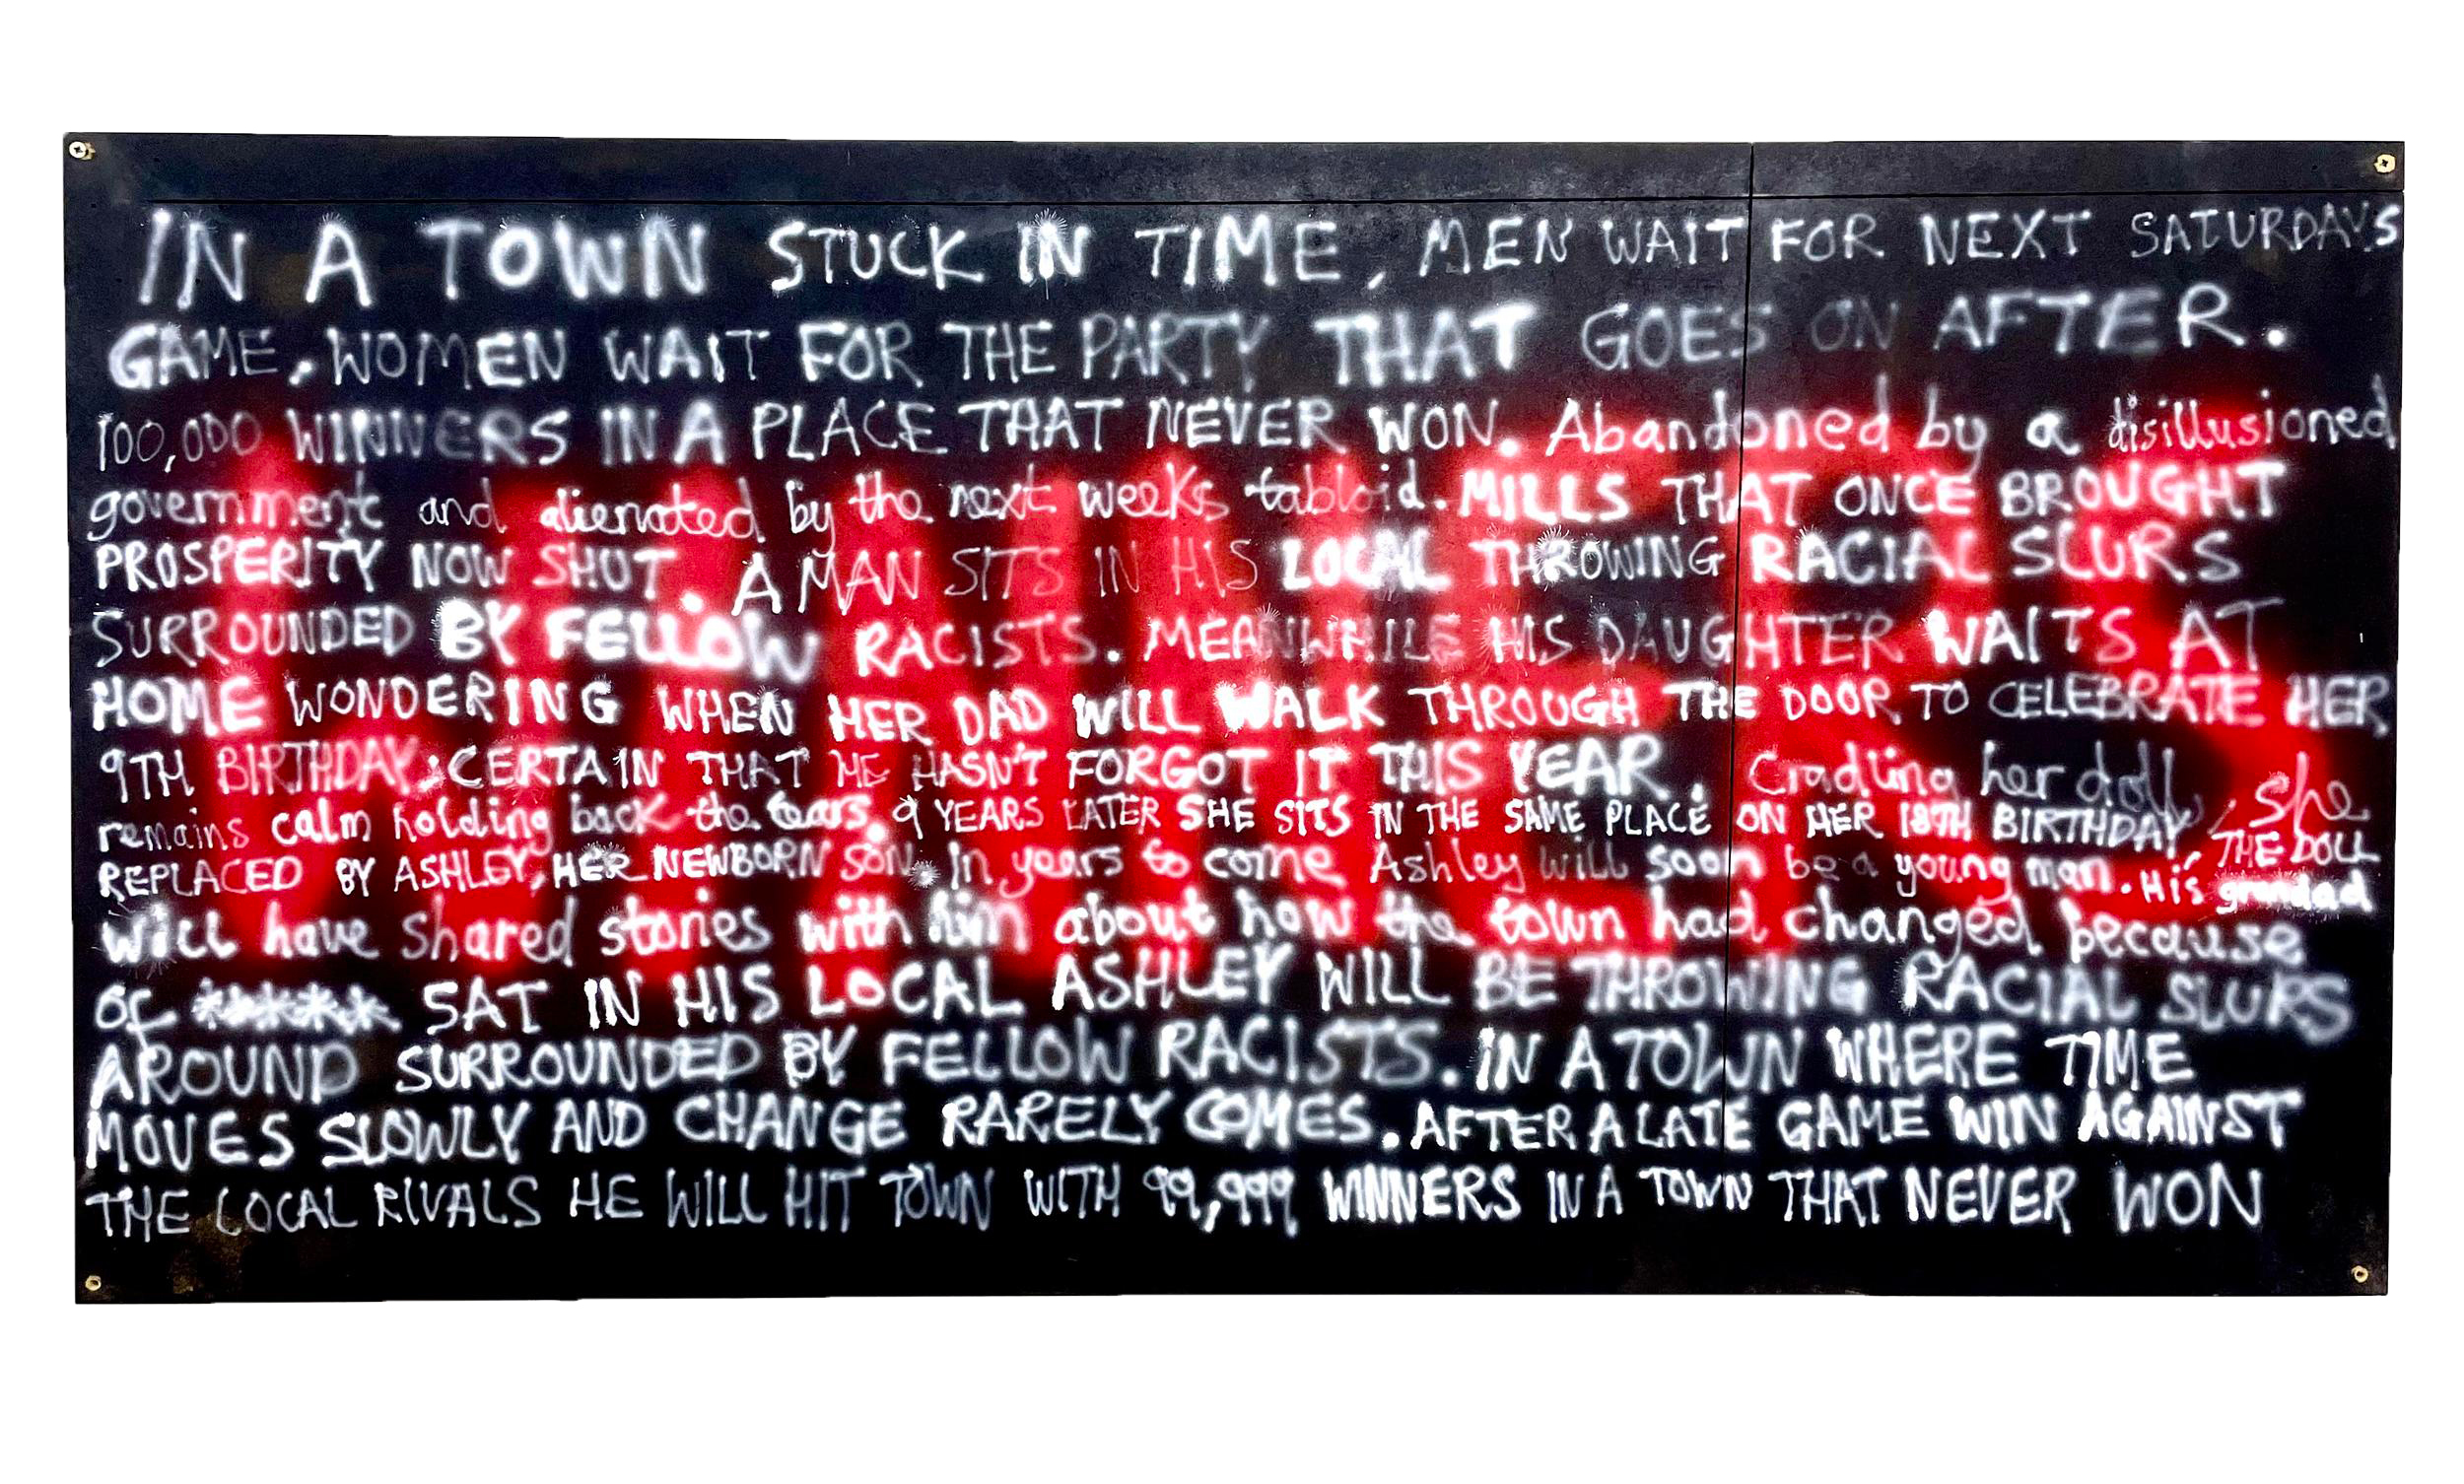 IN A TOWN STUCK IN TIME, MEN WAIT FOR NEXT SATURDAYS
GAME, WOMEN WAIT FOR THE PARTY THAT GOES ON AFTER.
100,000 WINNERS IN A PLACE THAT NEVER WON. Abandoned by a disillusioned
government and alienated by the next weeks tabloid. MILLS THAT ONCE BROUGHT
PROSPERITY NOW SHUT. A MAN SITS IN HIS LOCAL THROWING RACIAL SLURS
SURROUNDED BY FELLOW RACISTS. MEANWHILE HIS DAUGHTER WAITS AT
HOME WONDERING WHEN HER DAD WILL WALK THROUGH THE DOOR TO CELEBRATE HER
9TH BIRTHDAY, CERTAIN THAT HE HASN'T FORGOT IT THIS YEAR. Cradling her doll, she
remains calm holding back the tears. 9 YEARS LATER SHE SITS IN THE SAME PLACE ON HER 18TH BIRTHDAY, THE DOLL
REPLACED BY ASHLEY, HER NEWBORN SON. In years to come Ashley will soon be a young man. His grandad
will have shared stories with him about how the town had changed because
of ***** SAT IN HIS LOCAL ASHLEY WILL BE THROWING RACIAL SLURS
AROUND SURROUNDED BY FELLOW RACISTS. IN A TOWN WHERE TIME
MOVES SLOWLY AND CHANGE RARELY COMES. AFTER A LATE GAME WIN AGAINST
THE LOCAL RIVALS HE WILL HIT TOWN WITH 99,999 WINNERS IN A TOWN THAT NEVER WON
WINNERS